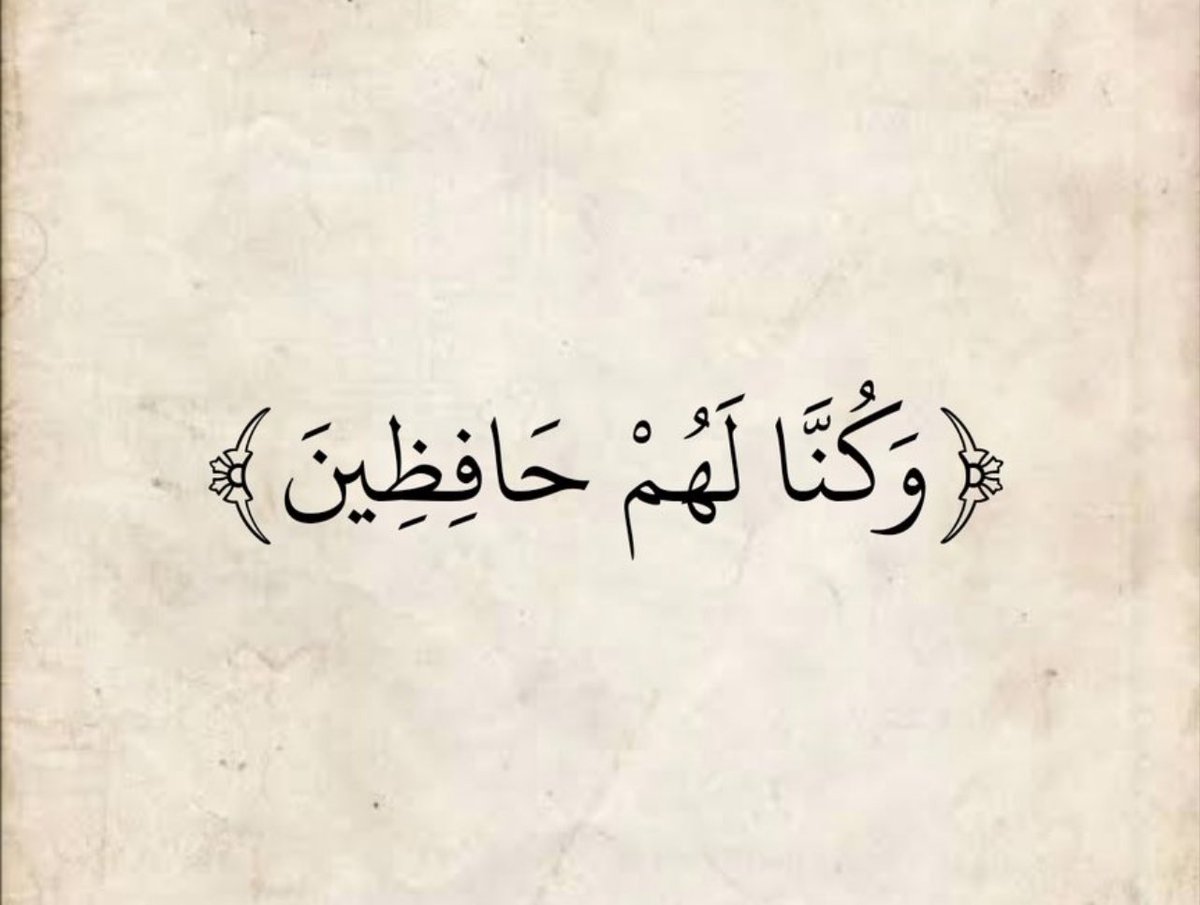 ﴿ وَكُنَّا لَهُمْ حَافِظِينَ ﴾